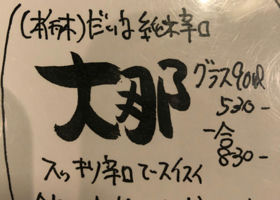 (栃木)だいな 純米辛口
大那
グラス90cc
530-
一合
830-
スッキリ辛口でスイスイ